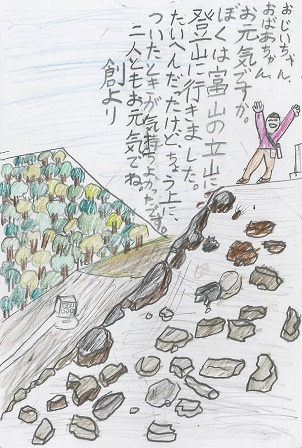 おじいちゃん、
おばあちゃん
お元気ですか。
ぼくは富山の立山に
登山に行きました。
たいへんだったけど、ちょう上に、
ついたときが気持ちよかったです。
二人ともお元気でね
創より